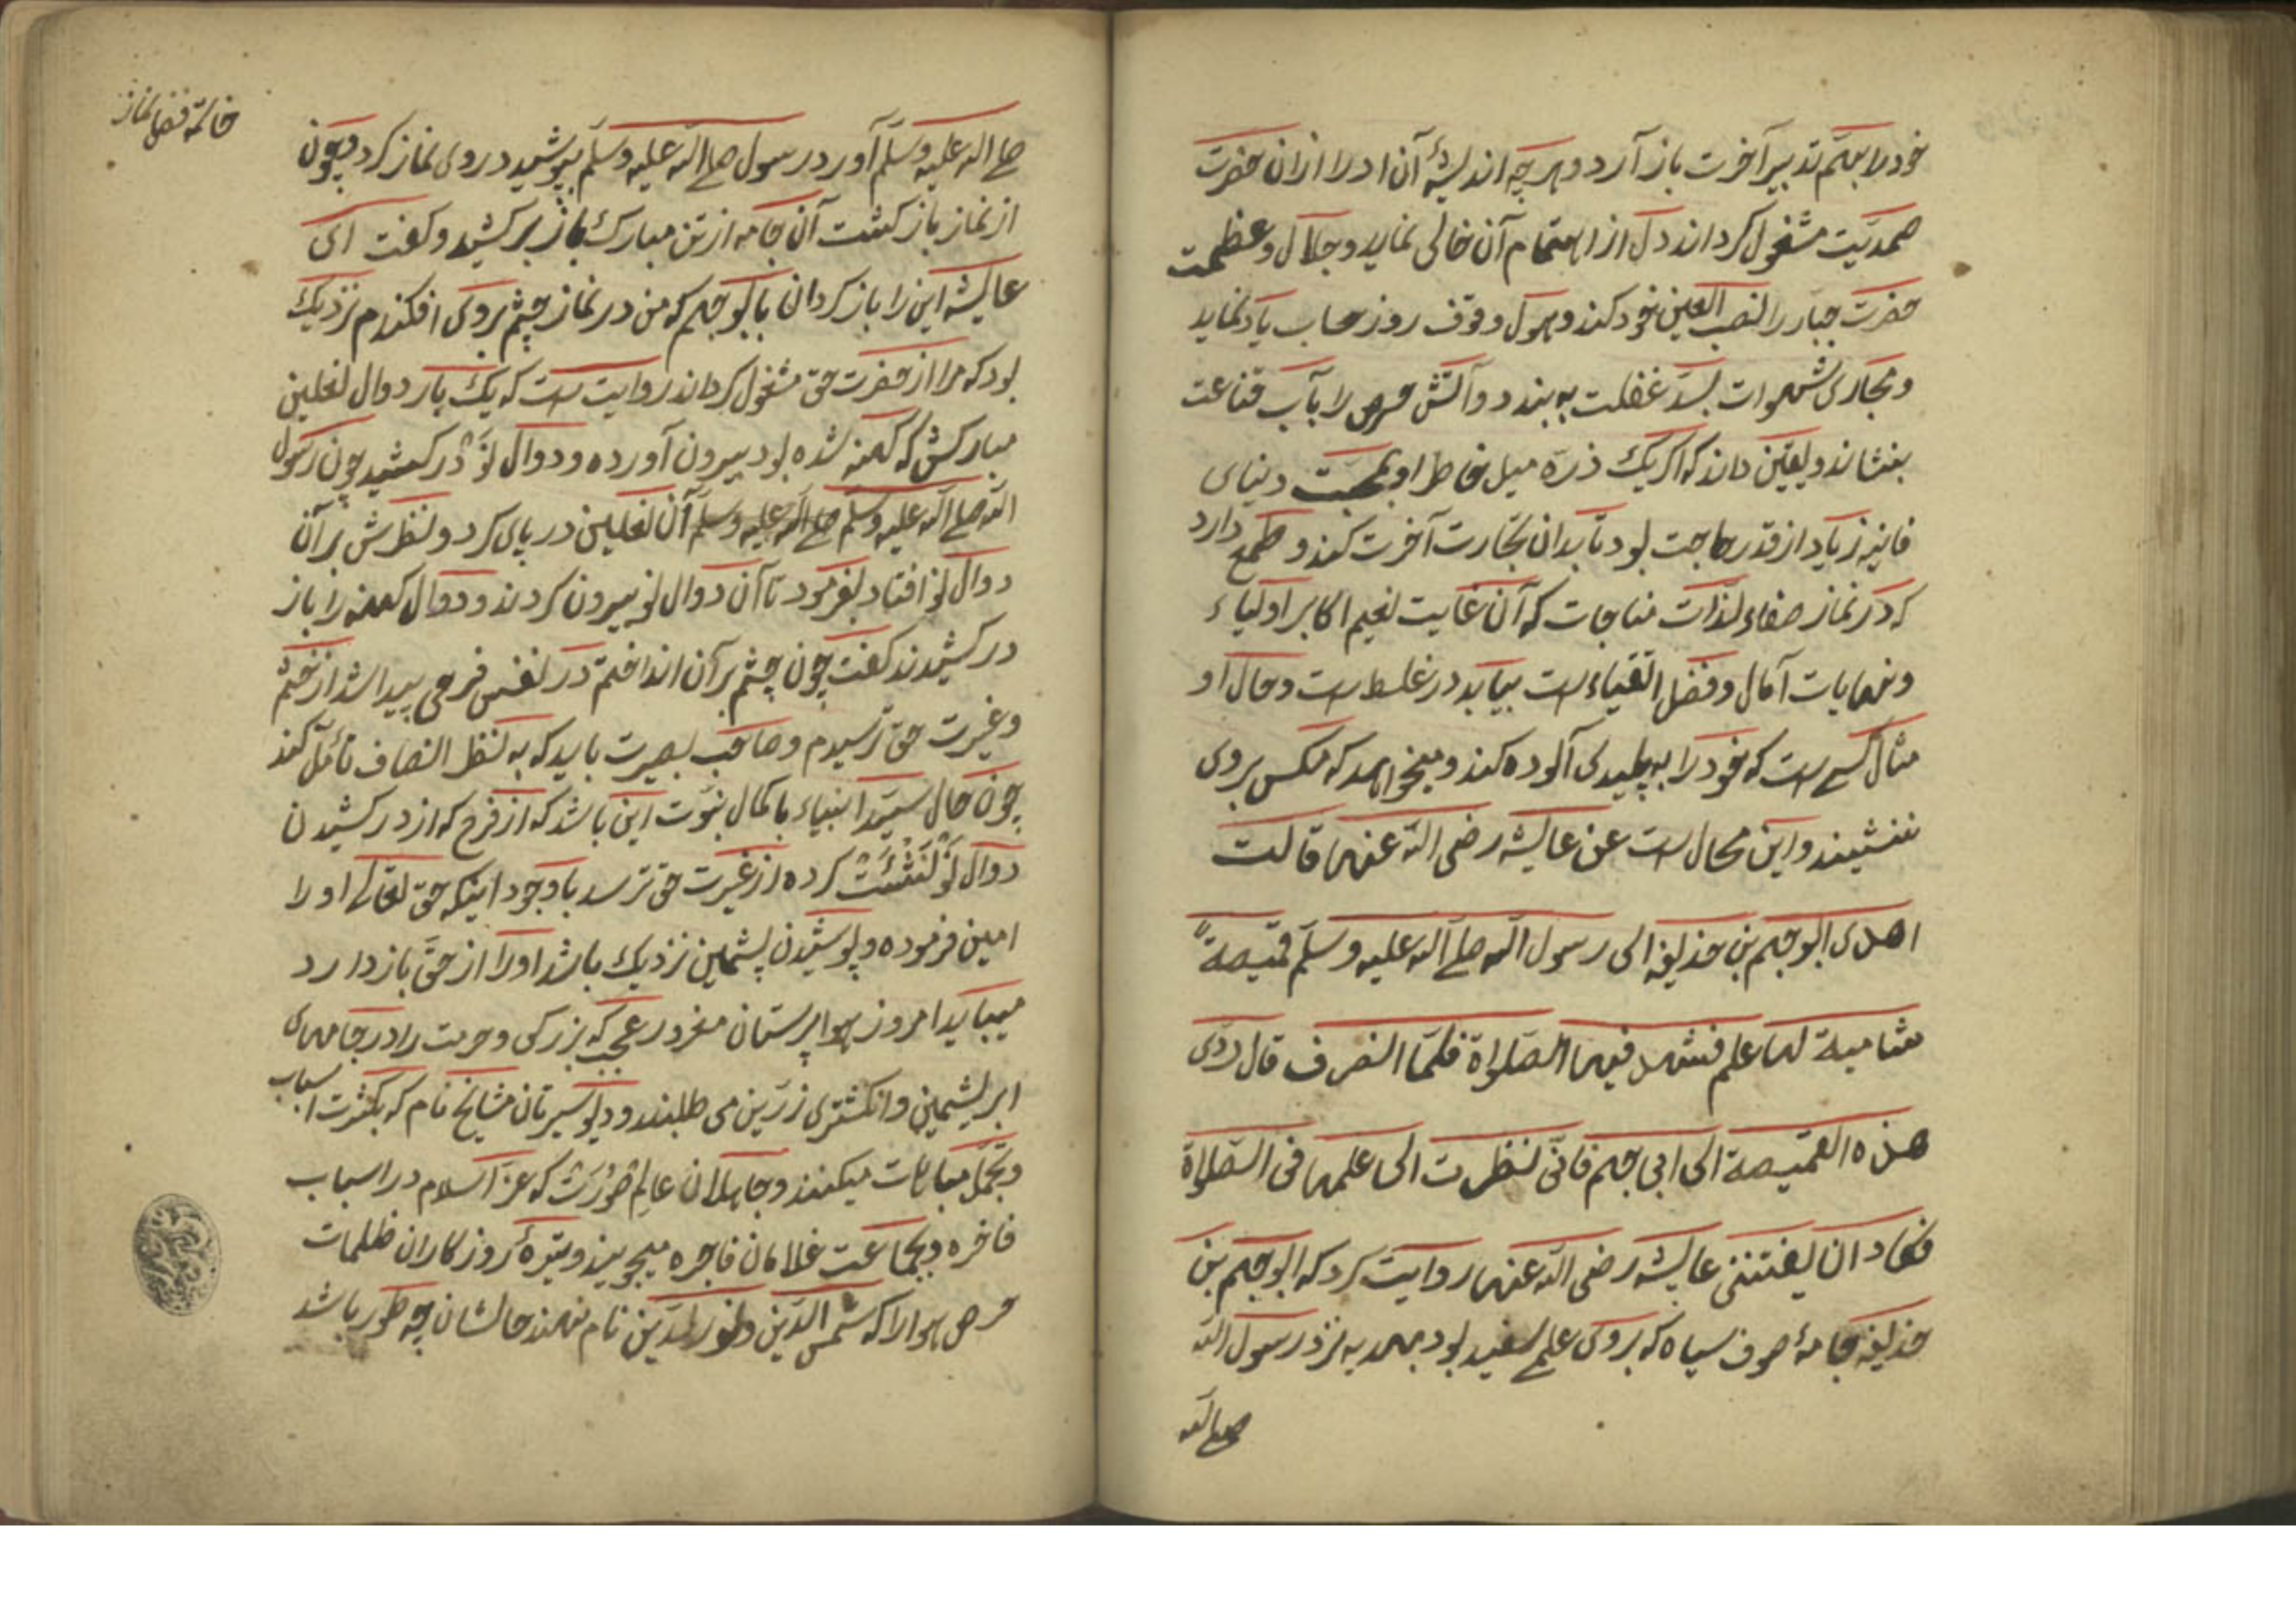 خود را بهم تدبیر آخرت باز آرد و هرچه اندیشهٔ آن او را ازان حضرت
صمدیّت مشغول کرداند دل از اهتمام آن خالی نماید و جلال و عظمت
حضرت جبار را نصب العین خود کند و هول وقوف روز حساب یاد نماید
و مجاری شهوات بسدّ غفلت به بندد و آتش حرص را بآب قناعت
بنشاند و یقین داند که اکر یک ذرّه میل خاطر او بمحبّت دنیای
فانیه زیاد از قدر حاجت بود تا بدان تجارت آخرت کند و طمع دارد
که در نماز صفاء لذّات مناجات که آن غایت نعیم اکابر اولیاء
و نهایات آمال و فضل اتقیاء است بیابد در غلط است و حال او
مثال کسے است که خود را به پلیدی آلوده کند و میخواهد که مکس بروی
ننشیند و این محال است عن عایشه رضی الله عنها قالت
اهدی ابو جهم بن حذیفه الی رسول الله صلے الله علیه وسلّم قمیصةً
شامیة لها علم فشهد فیها الصّلواة فلمّا انصرف قال ردّی
هذه القمیصة الی ابی جهم فانّی نظرت الی علمها فی الصّلواة
فکاد ان یفتننی عایشه رضی الله عنها روایت کرد که ابو جهم بن
حذیفه جامهٔ صوف سیاه که بروی علم سفید بود بهدیه نزد رسول الله
صلے الله
خاتمهٔ فضل نماز
صلے الله علیه وسلّم آورد رسول صلے الله علیه وسلّم بپوشید در وی نماز کرد چون
از نماز باز کشت آن جامه از تن مبارک باز برکشید و کفت ای
عایشه این را باز کردان بابو جهم که من در نماز چشم بروی افکندم نزدیک
بود که مرا از حضرت حق مشغول کرداند روایت است که یک بار دوال نعلین
مبارکش که کهنه شده بود بیرون آورده و دوال نو در کشید چون رسول
الله صلے الله علیه وسلّم صلے الله علیه وسلّم آن نعلین در پای کرد و نظرش بر آن
دوال نو افتاد بفرمود تا آن دوال نو بیرون کردند و دوال کهنه را باز
در کشیدند کفت چون چشم بر آن انداختم در نفس فرحی پیدا شد از خشم
و غیرت حق ترسیدم و صاحب بصیرت باید که به نظر انصاف تأمّل کند
چون حال سیّد انبیاء با کمال نبوّت این باشد که از فرح که از در کشیدن
دوال نو نشئت کرده از غیرت حق ترسد باوجود اینکه حق تعالے او را
امین فرموده و پوشیدن پشمین نزدیک باشد او را از حقّ باز دارد
میباید امروز هواپرستان مغرور عجب که بزرکی و حرمت را در جامهای
ابریشمین و انکشتری زرّین می طلبند و دیو سیرتان مشایخ نام که بکثرت اسباب
و تجمّل مباهات میکنند و جاهلان عالم صورت که عزّ اسلام در اسباب
فاخره و بجماعت غلامان فاجره میجویند و تیرهٔ روزکاران ظلمات
حرص و هوا را که شمس الدّین و نور الدّین نام نهند حالشان چه طور باشد